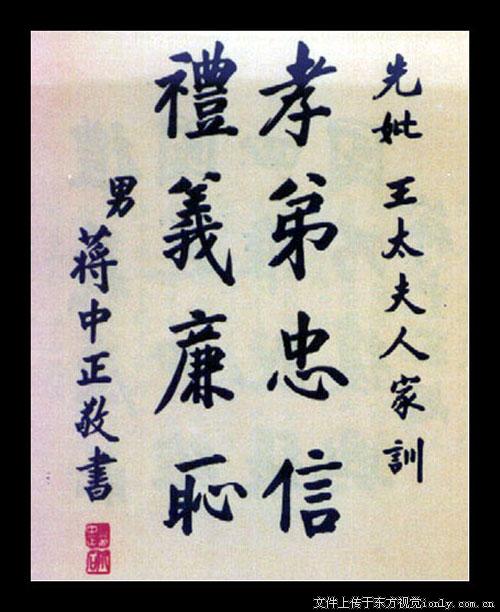 先妣 王太夫人家訓
孝弟忠信
禮義廉恥
男 蔣中正敬書
文件上传于东方视觉ionly.com.cn